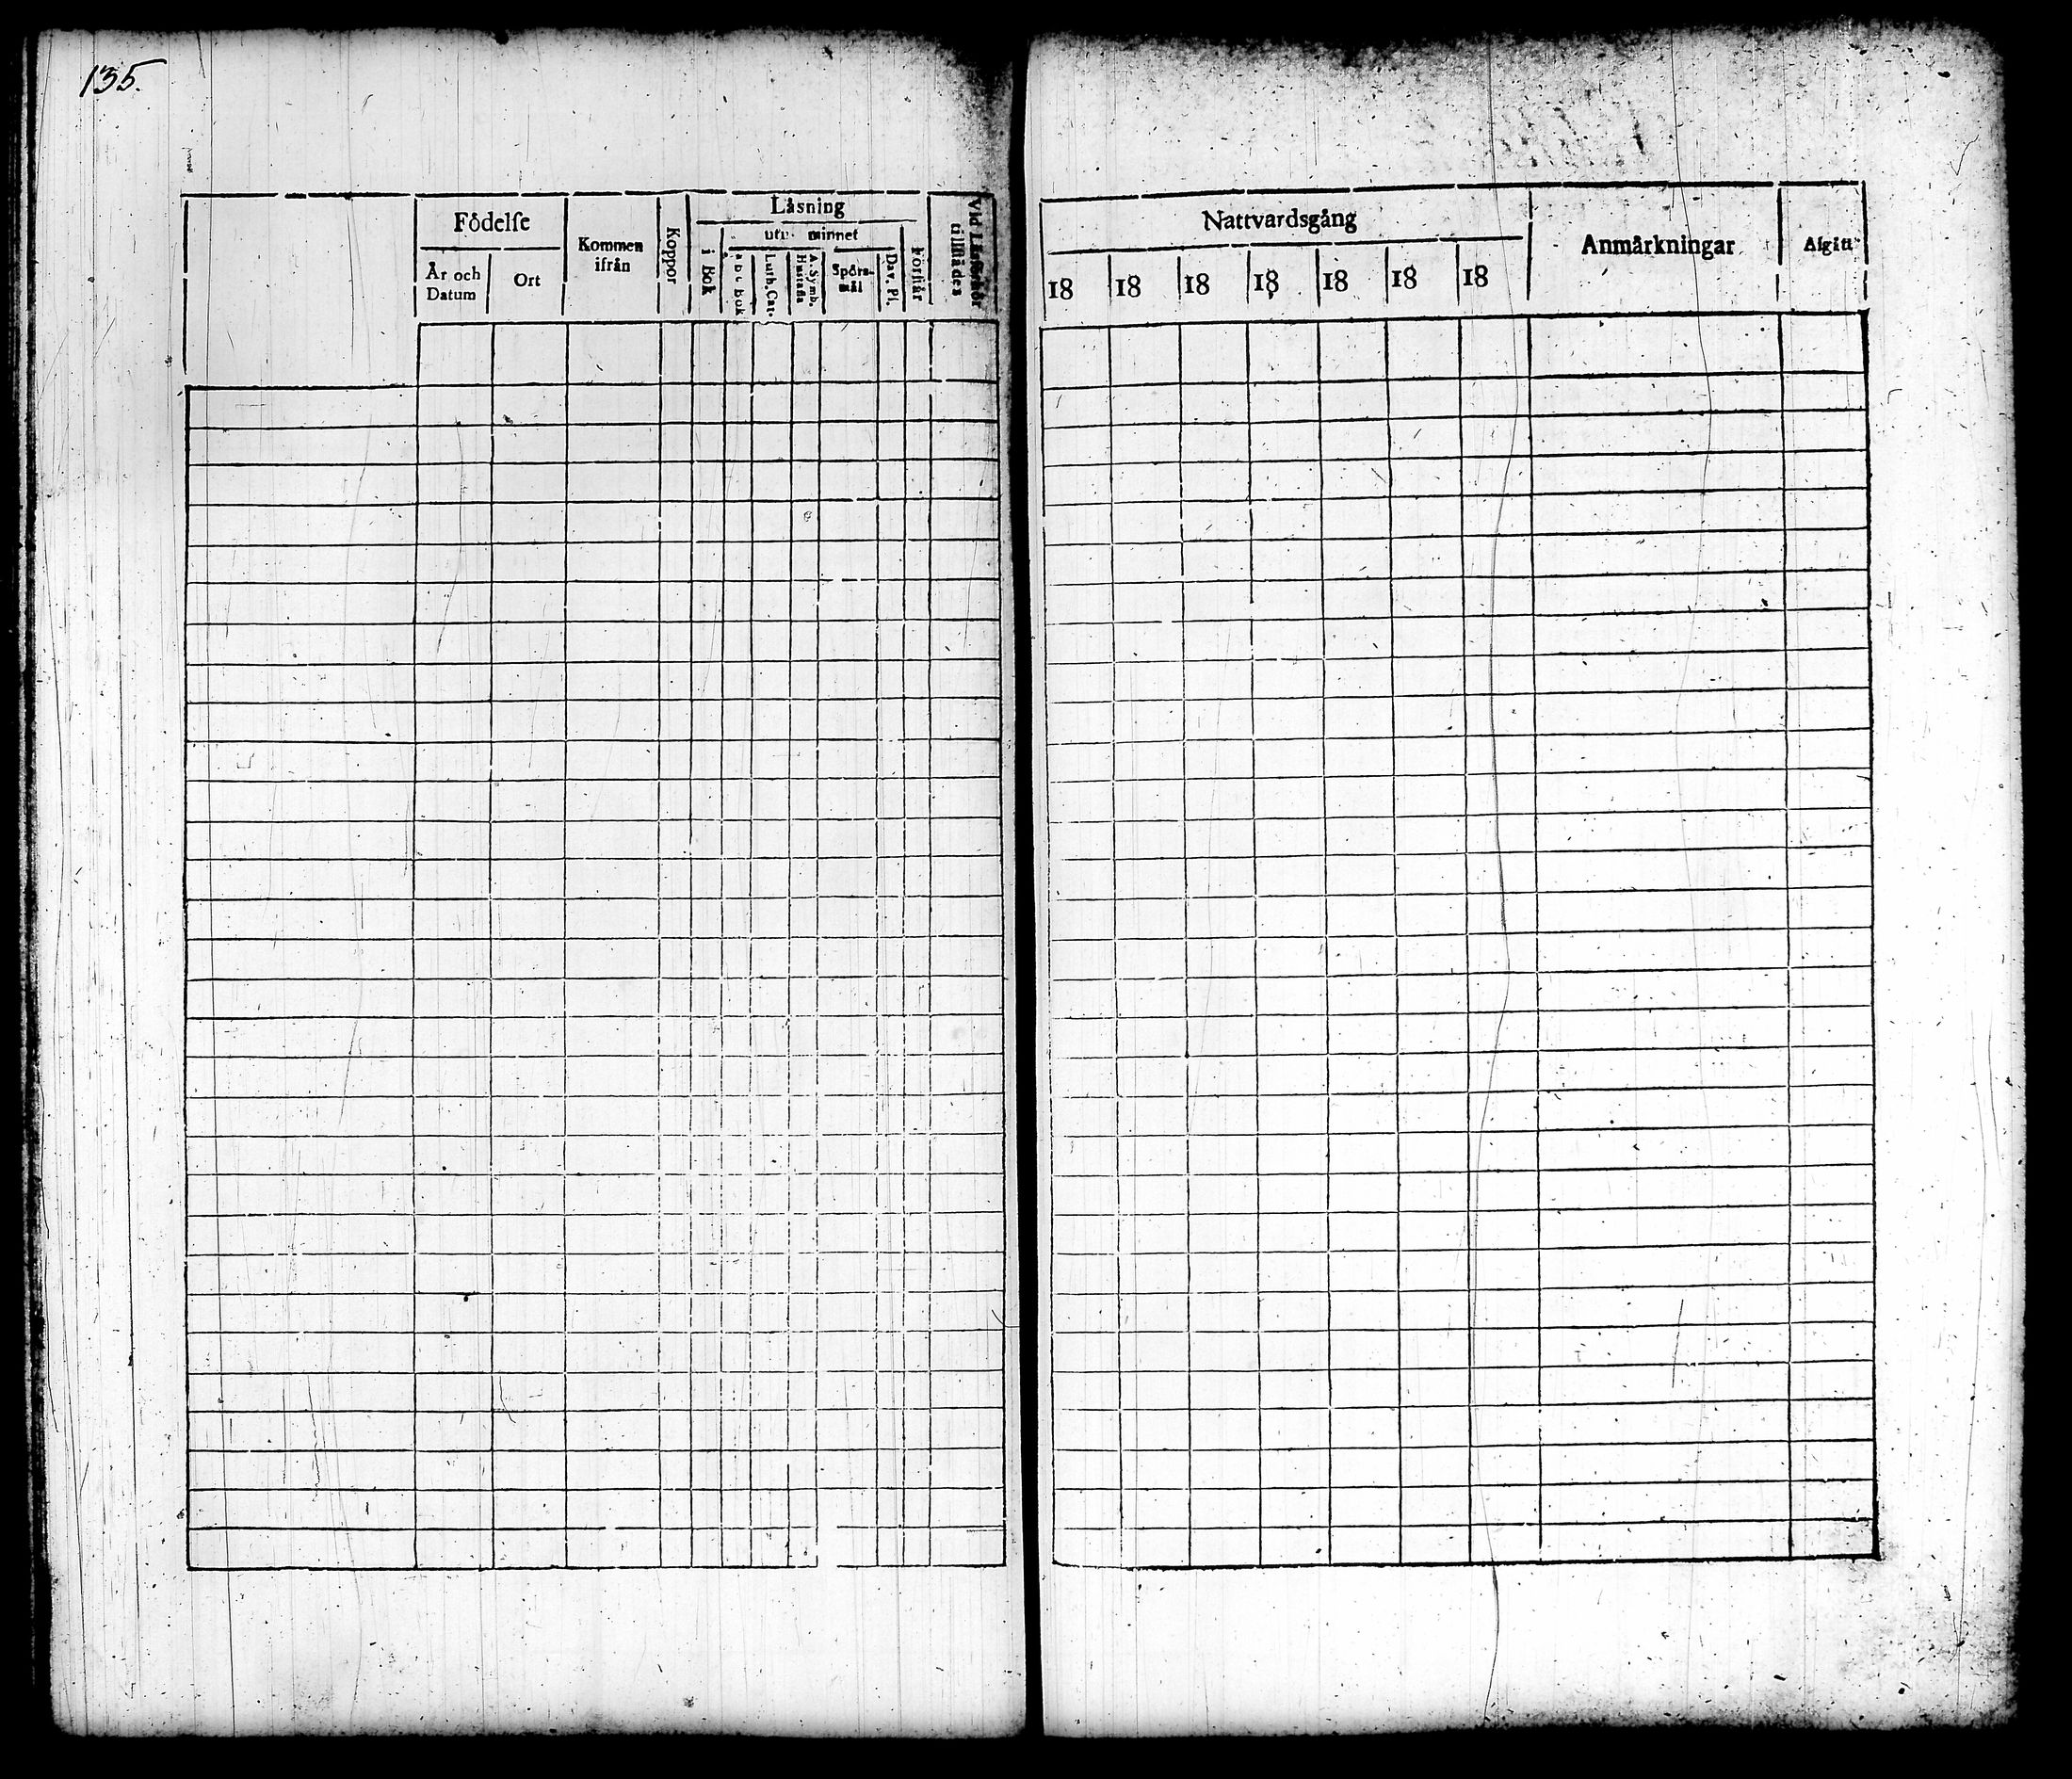 135.
Födelſe
År och Datum
Ort
Kommen ifrån
Koppor
Läsning
i Bok
utu minnet
a b c Bok
Luth. Cat.
A. Symb. Hustafla
Spörsmål
Dav. Pſ.
Förſtår
Vid Läsförhör tillſtädes
Nattvardsgång
18 18 18 18 18 18 18
Anmärkningar
Afgått